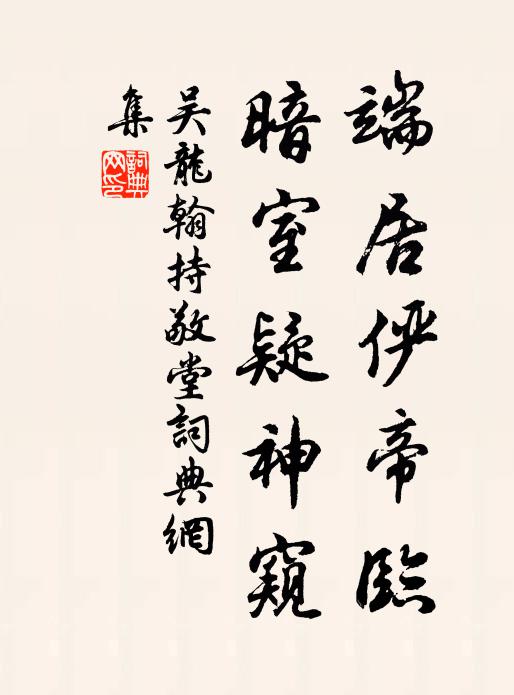 端居俨帝臨
暗室疑神窺
吴龍翰持敬堂詞典網
集
詞典
网印